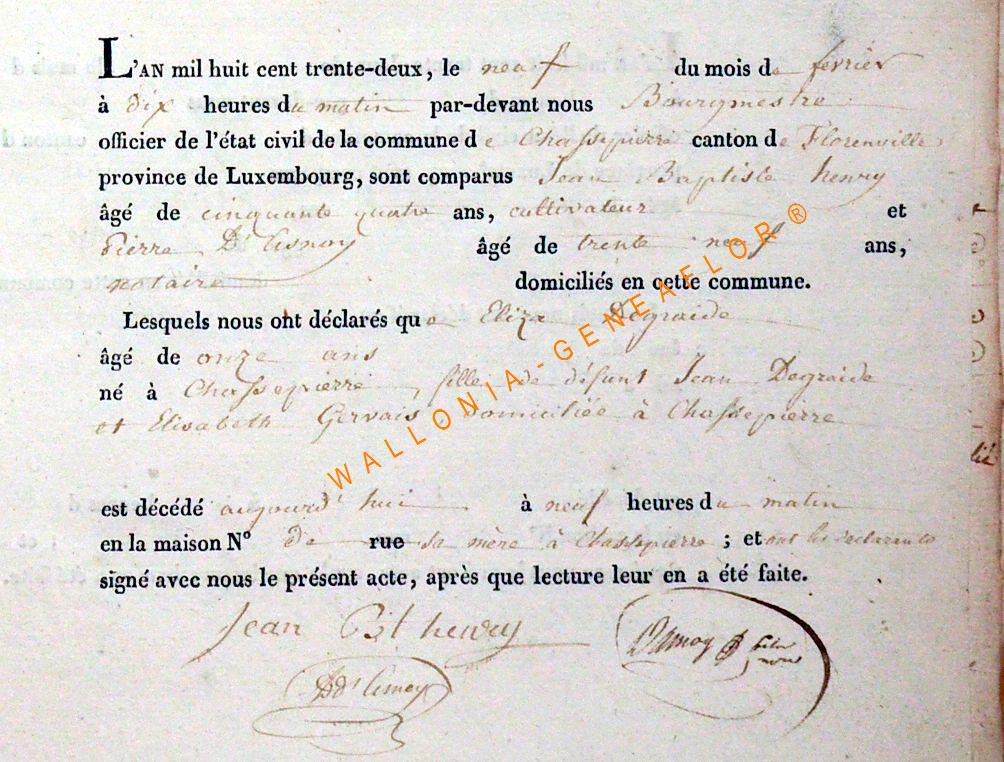 L'AN mil huit cent trente-deux, le neuf du mois de février
à dix heures du matin par-devant nous Bourgmestre
officier de l'état civil de la commune de Chassepierre canton de Florenville
province de Luxembourg, sont comparus Jean Baptiste henry
âgé de cinquante quatre ans, cultivateur et
Pierre âgé de trente neuf ans,
notaire domiciliés en cette commune.
Lesquels nous ont déclarés que Eliza Degraide
âgé de onze ans
né à Chassepierre, fille de défunt Jean Degraide
et Elisabeth Gervais domiciliée à Chassepierre
est décédé aujourd'hui à neuf heures du matin
en la maison N° de rue sa mère à Chassepierre ; et ont les déclarants
signé avec nous le présent acte, après que lecture leur en a été faite.
Jean Bt henry
WALLONIA-GENEAFLOR®